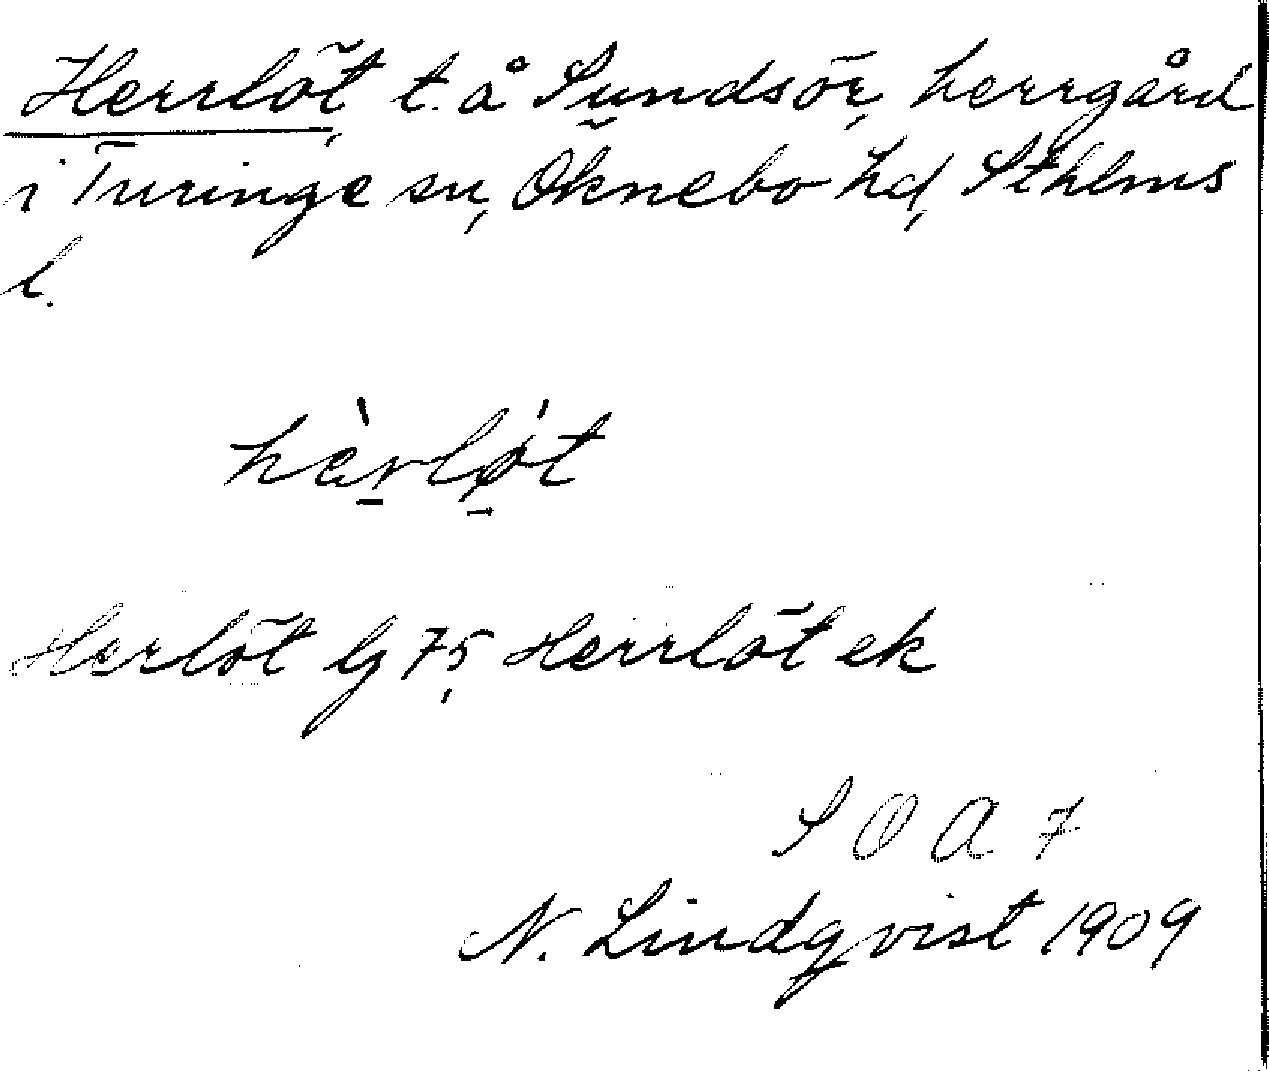 Herrlöt t. å Sundsör, herrgård
i Turinge sn, Öknebo hd, Sthlms
l.
hèrlǿt
Herlöt lj 75, Herrlöt ek
S O A 7
N. Lindqvist 1909